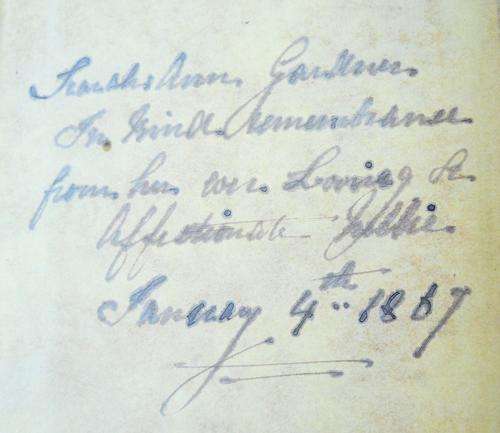 Sarah Ann Gardner
In kind remembrance
from her ever Loving &
Affectionate Nellie
January 4th 1887